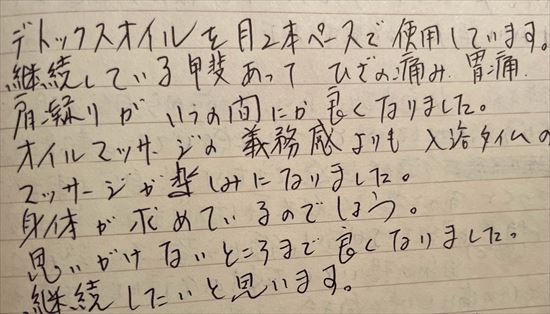 デトックスオイルを月2本ペースで使用しています。
継続している甲斐あって ひざの痛み、胃痛、
肩凝りがいつの間にか良くなりました。
オイルマッサージの義務感よりも入浴タイムの
マッサージが楽しみになりました。
身体が求めているのでしょう。
思いがけないところまで良くなりました。
継続したいと思います。